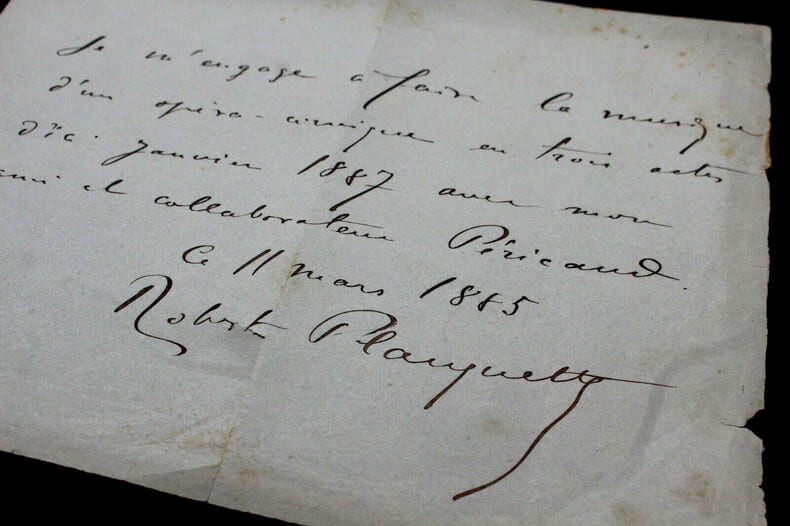 Je m'engage à faire la musique
d'un opéra-comique en trois actes
d'ici Janvier 1887 avec mon
ami et collaborateur Péricaud.
Ce 11 mars 1885
Robert Planquette